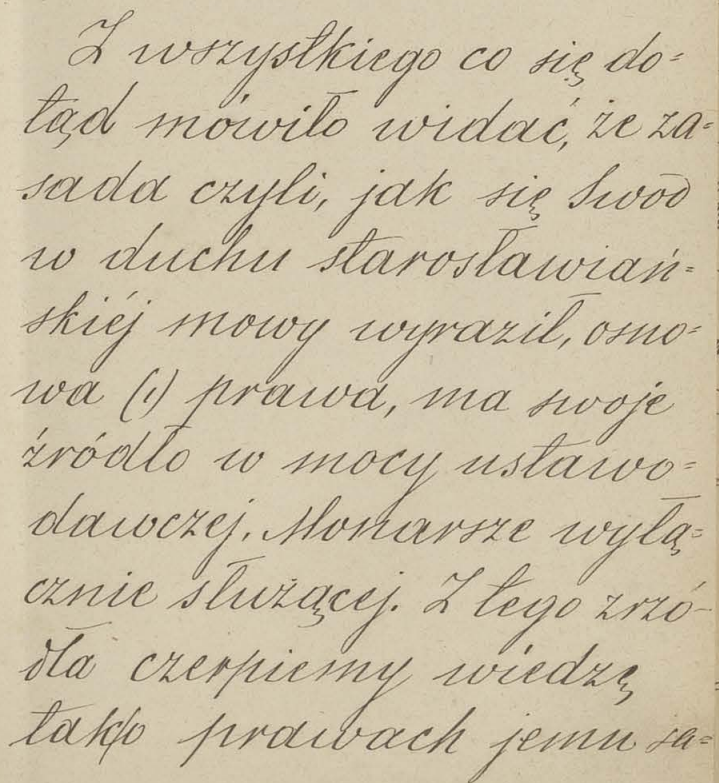 Z wszystkiego co się do=
tąd mówiło widać, że za=
sada czyli, jak się Swod
w duchu starosławiań=
skiéj mowy wyraził, osno=
wa (1) prawa, ma swoje
źródło w mocy ustawo=
dawczej, Monarsze wyłą=
cznie służącej. Z tego zrzó-
dła czerpiemy wiedzę
tak o prawach jemu sa=